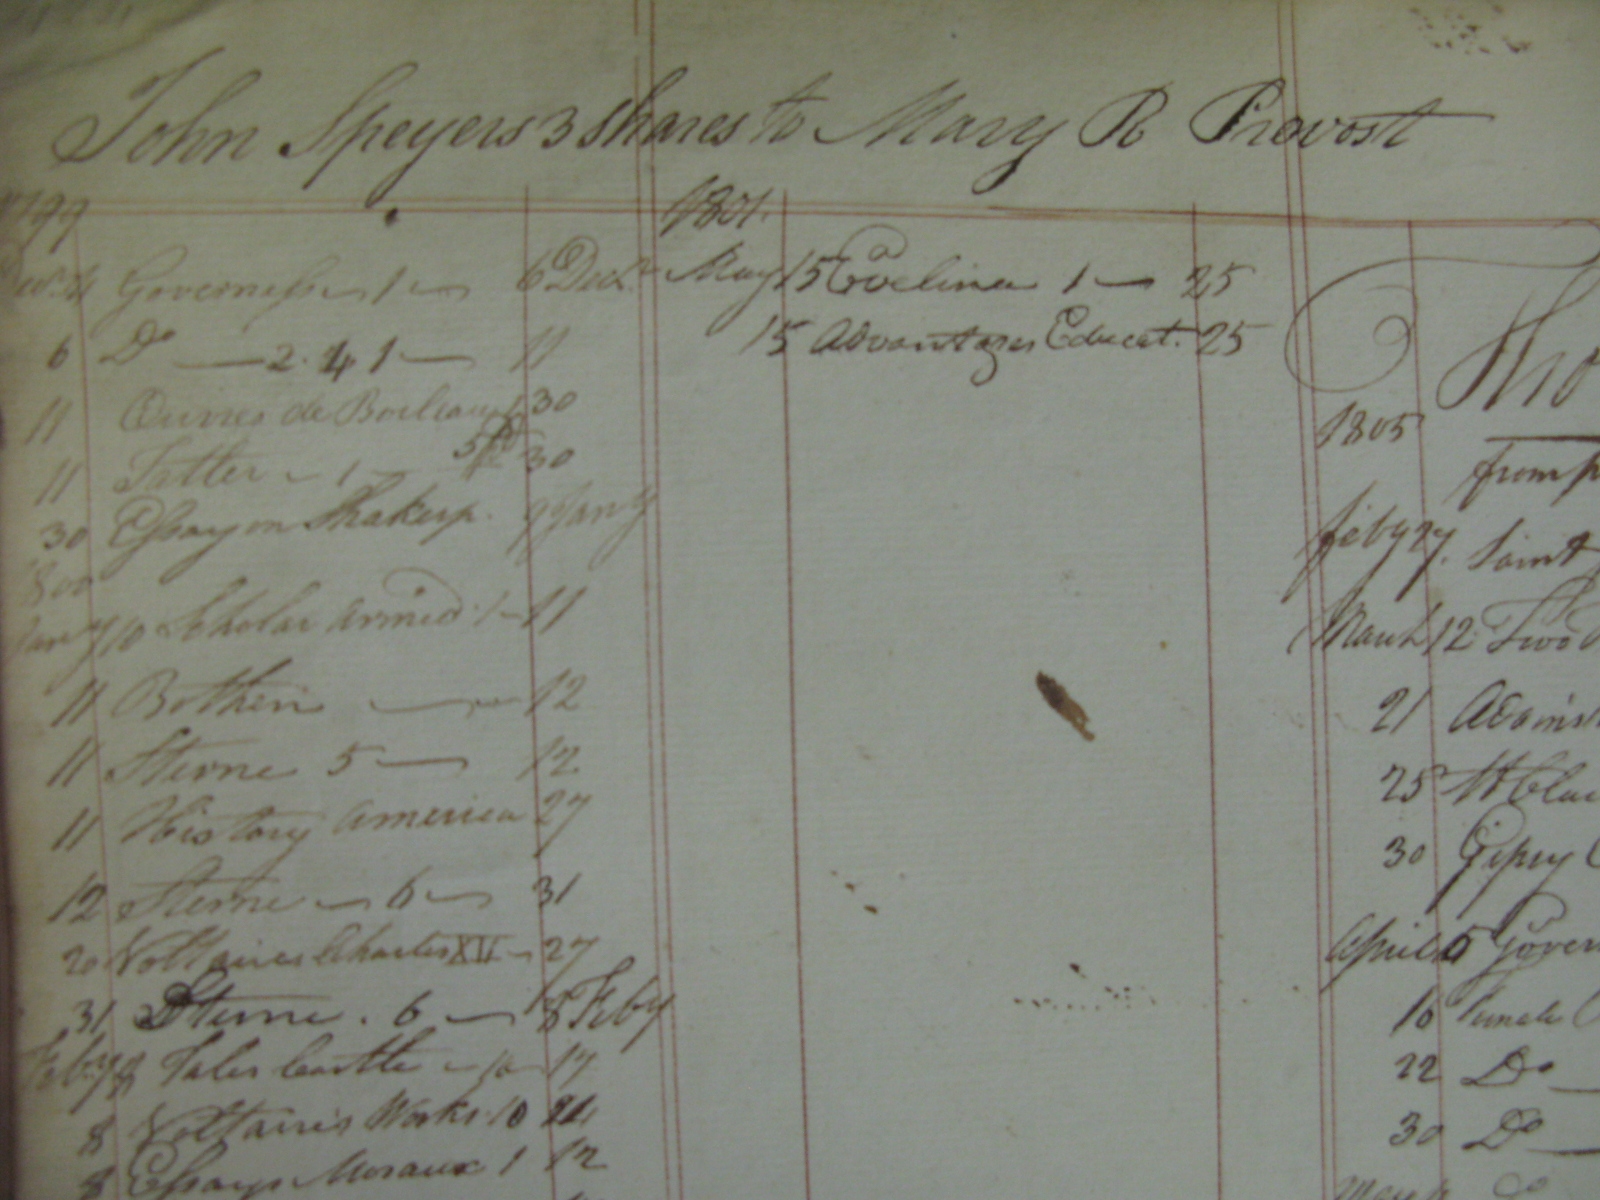 John Speyers 3 shares to Mary R Prevost
1799
Decr. 4 Governess 1 6 Decr.
6 Do 2. 4 1 11
11 Œuvres de Boileau 1 30
11 Tatler 1 30
30 Essay on Shakesp. 9 Jany
1800
Jany 10 Scholar armed 1 11
11 12
11 Sterne 5 12
11 History America 27
12 Sterne 6 31
20 Voltaires Charles XII 27
31 Sterne. 6 8 Feby
Feby 8 Tales Castle 17
8 Voltaire's Works 10
8 Essays Moraux 1 12
1801.
May 15 Evelina 1 25
15 Advantages Educat. 25
Tho
1805
from
Feby 27. Saint
March 12 Two
21
25 St Clai
30 Gipsy
April 5 Govern
16 Female
22 Do
30 Do